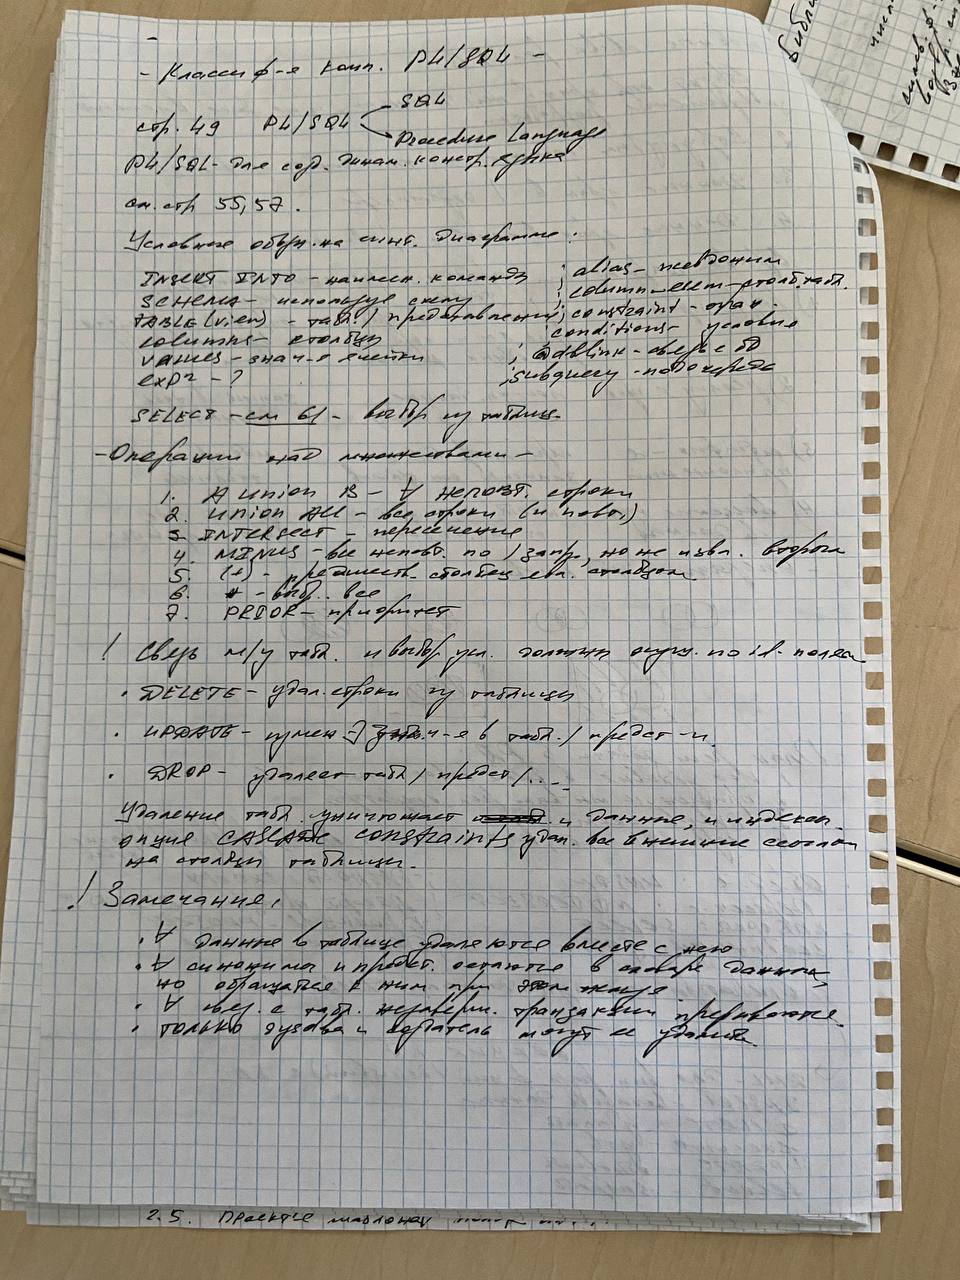 - Классиф-я комп. PL/SQL -
стр. 49 PL/SQL
SQL
Procedure Language
PL/SQL - для сод. динам. констр. языка
см. стр 55, 57.
Условное обозн. на синт. диаграмме:
INSERT INTO - наимен. команды
SCHEMA - используе схему
TABLE (view) - табл. / представление
columns - столбцы
values - знач-я ячейки
expr - ?
; alias - псевдоним
; column_elem - столб. табл.
; constraint - огран.
; conditions - условия
; @dblink - связь с бд
; subquery - подзапрос
SELECT - см 61 - выбор из таблиц
- Операции над множествами -
1. A union B - ∀ неповт. строки
2. union ALL - все строки (и повт.)
3. INTERSECT - пересечение
4. MINUS - все неповт. по 1 запр., но не изв. вторым
5. (+) - предшеств. столбец явл. столбцом
6. * - выб. все
7. PRIOR - приоритет
! Связь м/у табл. и выбор усл. должны осущ. по id-полям
. DELETE - удал. строки из таблицы
. UPDATE - измен в табл. / предст-и.
. DROP - удаляет табл / предст / ...
Удаление табл. уничтожает и данные, и индексы
опция CASCADE constraints удал. все внешние ссылки
на столбцы таблицы.
! Замечания:
. ∀ данные в таблице удаляются вместе с нею
. ∀ синонимы и предст. остаются в словаре данных,
но обращаться к ним при этом нельзя
. ∀ с табл. незаверш. транзакции прерываются
. только и создатель могут ее удалить.
2.5.